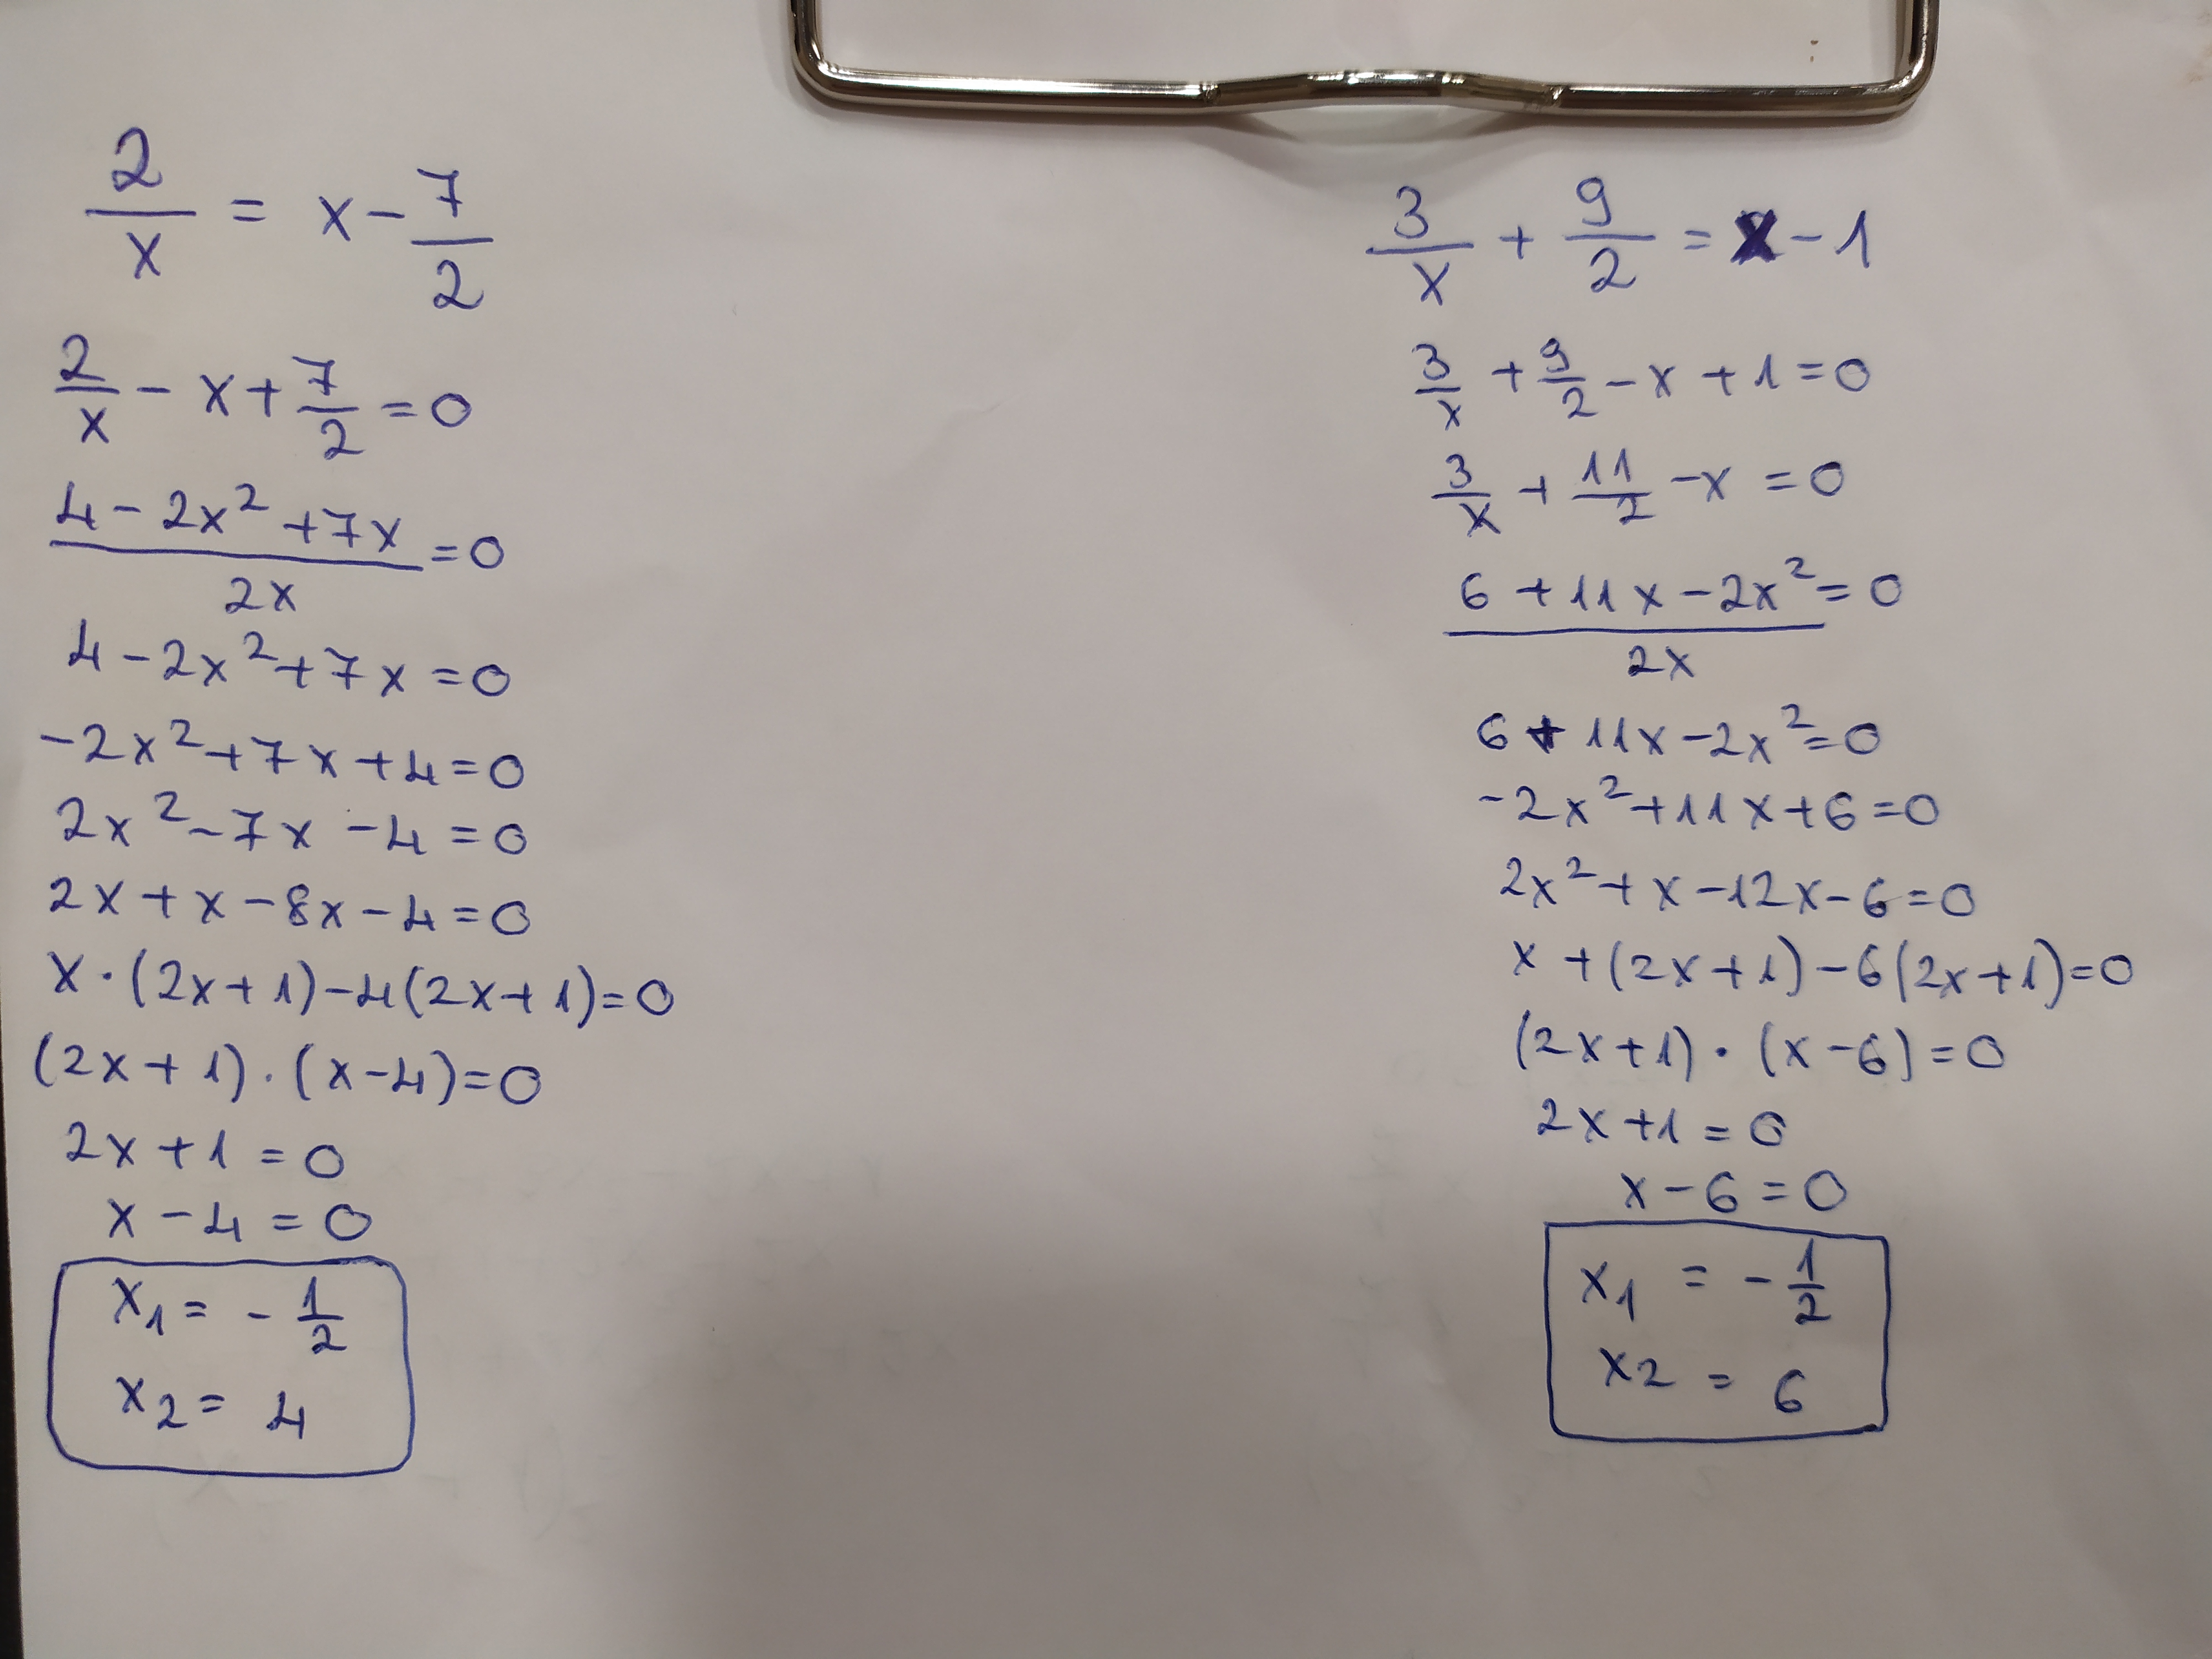 2/x = x - 7/2
2/x - x + 7/2 = 0
(4 - 2x² + 7x)/2x = 0
4 - 2x² + 7x = 0
-2x² + 7x + 4 = 0
2x² - 7x - 4 = 0
2x + x - 8x - 4 = 0
x · (2x + 1) - 4(2x + 1) = 0
(2x + 1) · (x - 4) = 0
2x + 1 = 0
x - 4 = 0
x₁ = - 1/2
x₂ = 4
3/x + 9/2 = x - 1
3/x + 9/2 - x + 1 = 0
3/x + 11/2 - x = 0
(6 + 11x - 2x²)/2x = 0
6 + 11x - 2x² = 0
-2x² + 11x + 6 = 0
2x² + x - 12x - 6 = 0
x + (2x + 1) - 6(2x + 1) = 0
(2x + 1) · (x - 6) = 0
2x + 1 = 0
x - 6 = 0
x₁ = - 1/2
x2 = 6